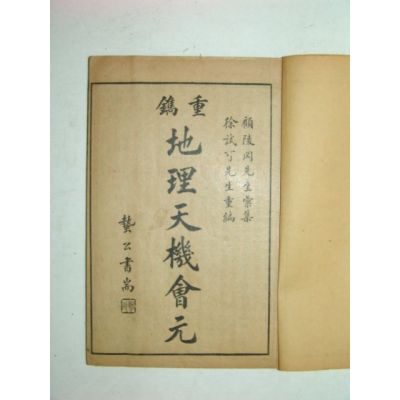 顧陵岡先生彙集
徐試可先生重編
重鐫
地理天機會元
公書耑